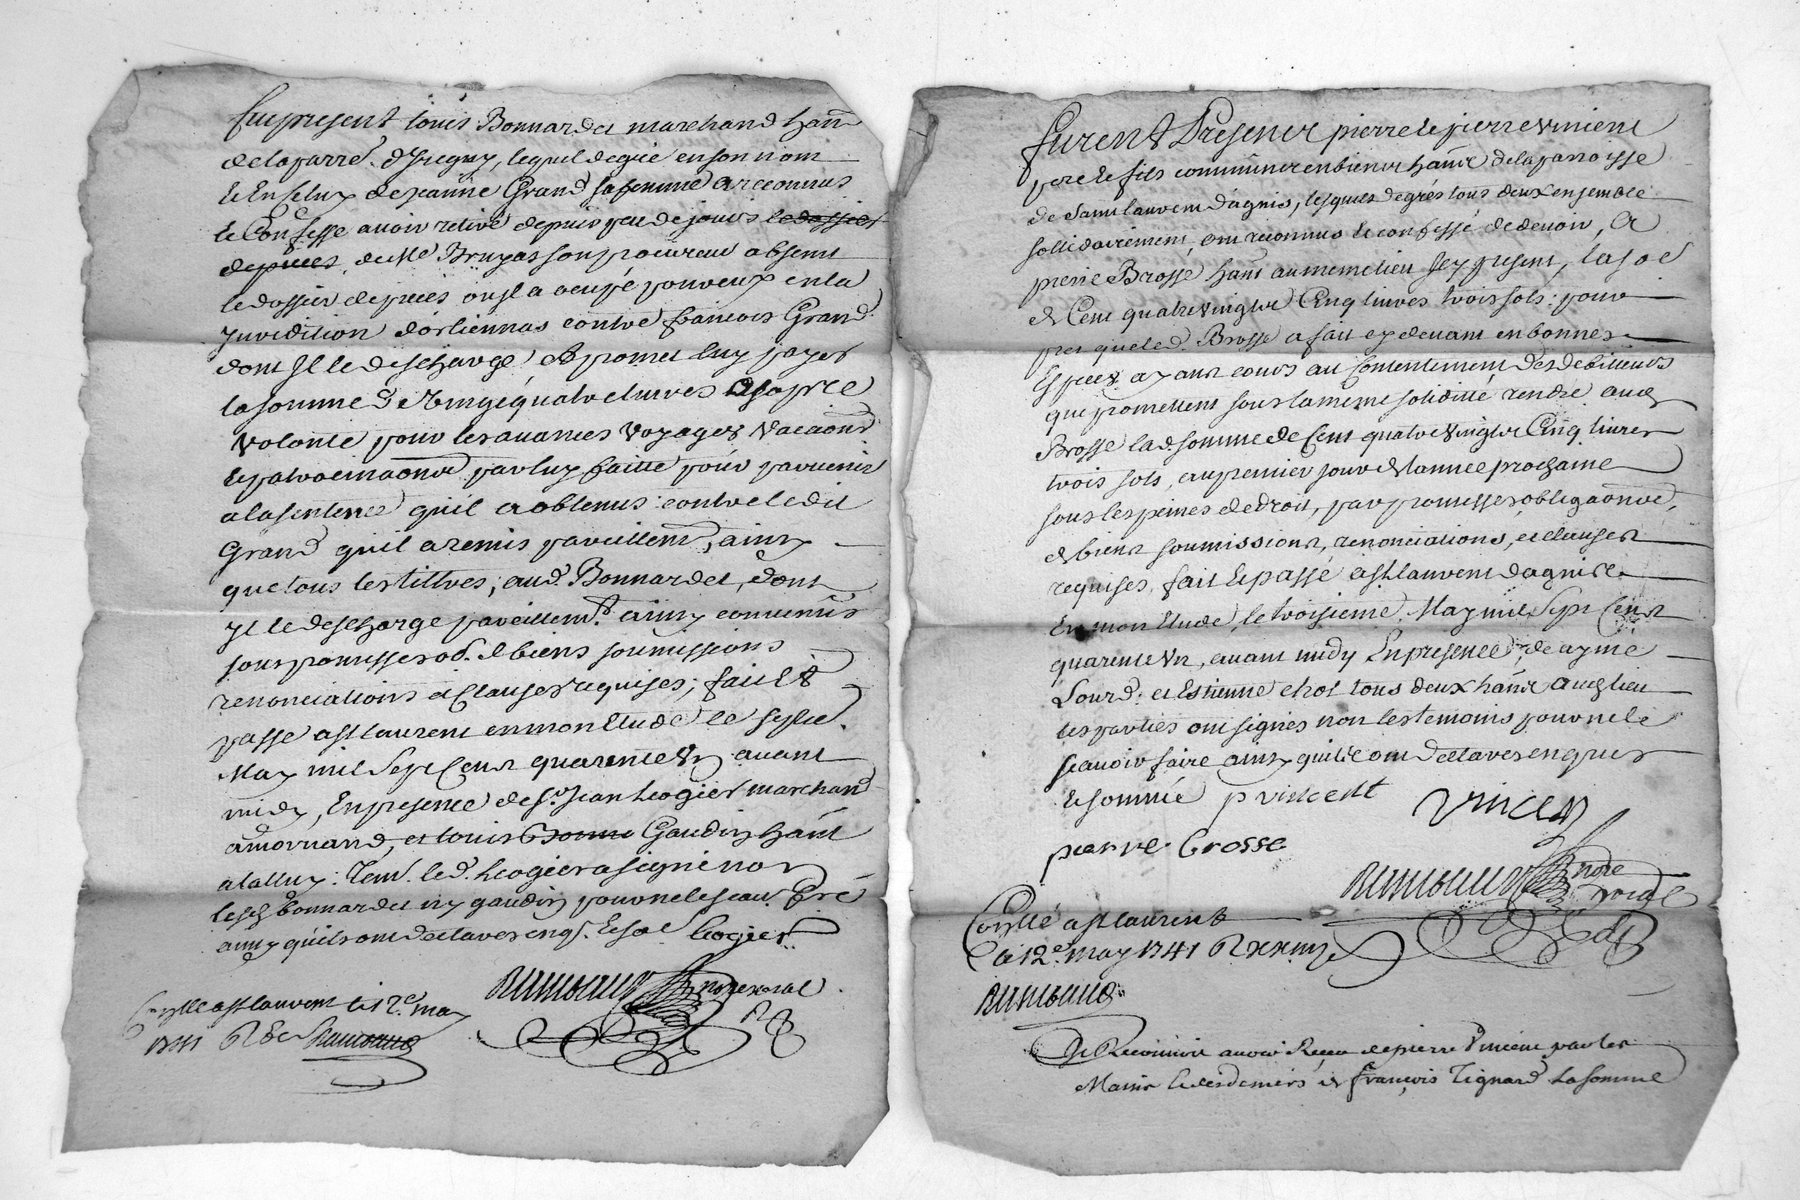 fut present Louis Bonnardet marchand han
de la parr. d'Irigny, lequel de gré en son nom
et en celuy de Jeanne Grand sa femme a reconnus
et Confesse avoir retiré depuis peu de jours le dossier
de pieces, de Me Bruyas son procureur absent
le dossier de pieces ou il a occupé pour eux en la
Juridition d'orliennas contre francois Grand
dont Il le descharge, et promet luy payer
la somme de vingt quatre livres a sa pre
volonté pour les avances voyages vacaons
et patrocinaons par luy faitte pour parvenir
a la sentence qu'il a obtenus contre le dit
Grand qu'il a remis pareillemt, ainsy
que tous les tiltres, aud. Bonnardet, dont
Il le descharge pareillemt. ainsy convenus
sous promesses ob. de biens soumissions
renonciations et Clauses requises, fait et
passé a st laurent en mon Etude le
May mil Sept Cent quarente Un avant
midy, En presence de sr. Jean Logier marchand
a mornand, et Louis Bonna Gaudin hant
a taluy: tem. led. Logier a signé non
led. bonnardet ny gaudin pour ne le scavoir
ainsy qu'ils ont declarés enqs. et so Logier
Remoaud no re roial
Con llé a st laurent le 12e. may
1741 R
furent Presents pierre et pierre vincent
pere et fils communs en biens hants de la parroisse
de Saint laurent d'agnis, lesquels de grés tous deux ensemble
sollidairement, ont reconnus et confessé de devoir, A
pierre Brosse hant au meme lieu Icy present, la soe
de Cent quatre vingts Cinq livres trois sols: pour
pres que led. Brosse a fait cy devant en bonnes
Especes ayant cours au Contentement des debiteurs
que promettent sous la meme solidité rendre aud.
Brosse lad. somme de Cent quatre vingts Cinq livres
trois sols, au premier jour de l'année prochaine
sous les peines de droit, par promesses obligaons
de biens soumissions, renonciations, et clauses
requises, fait et passé a st laurent d'agnis
En mon Etude, le troisieme May mil Sept Cent
quarente Un, avant midy En presence, de aymé
Lourd. et Estienne chol tous deux hants aud. lieu
les parties ont signés non les temoins pour ne le
scavoir faire ainsy qu'ils ont declarés enquis
et sommé p vincent vincent
pierre brosse
Remoaud no re roial
Con llé a st laurent
le 12e. may 1741 R
Remoaud
Je Reconnoit avoir Receu de pierre Vincent par les
Mains et des deniers de François Tignard La somme